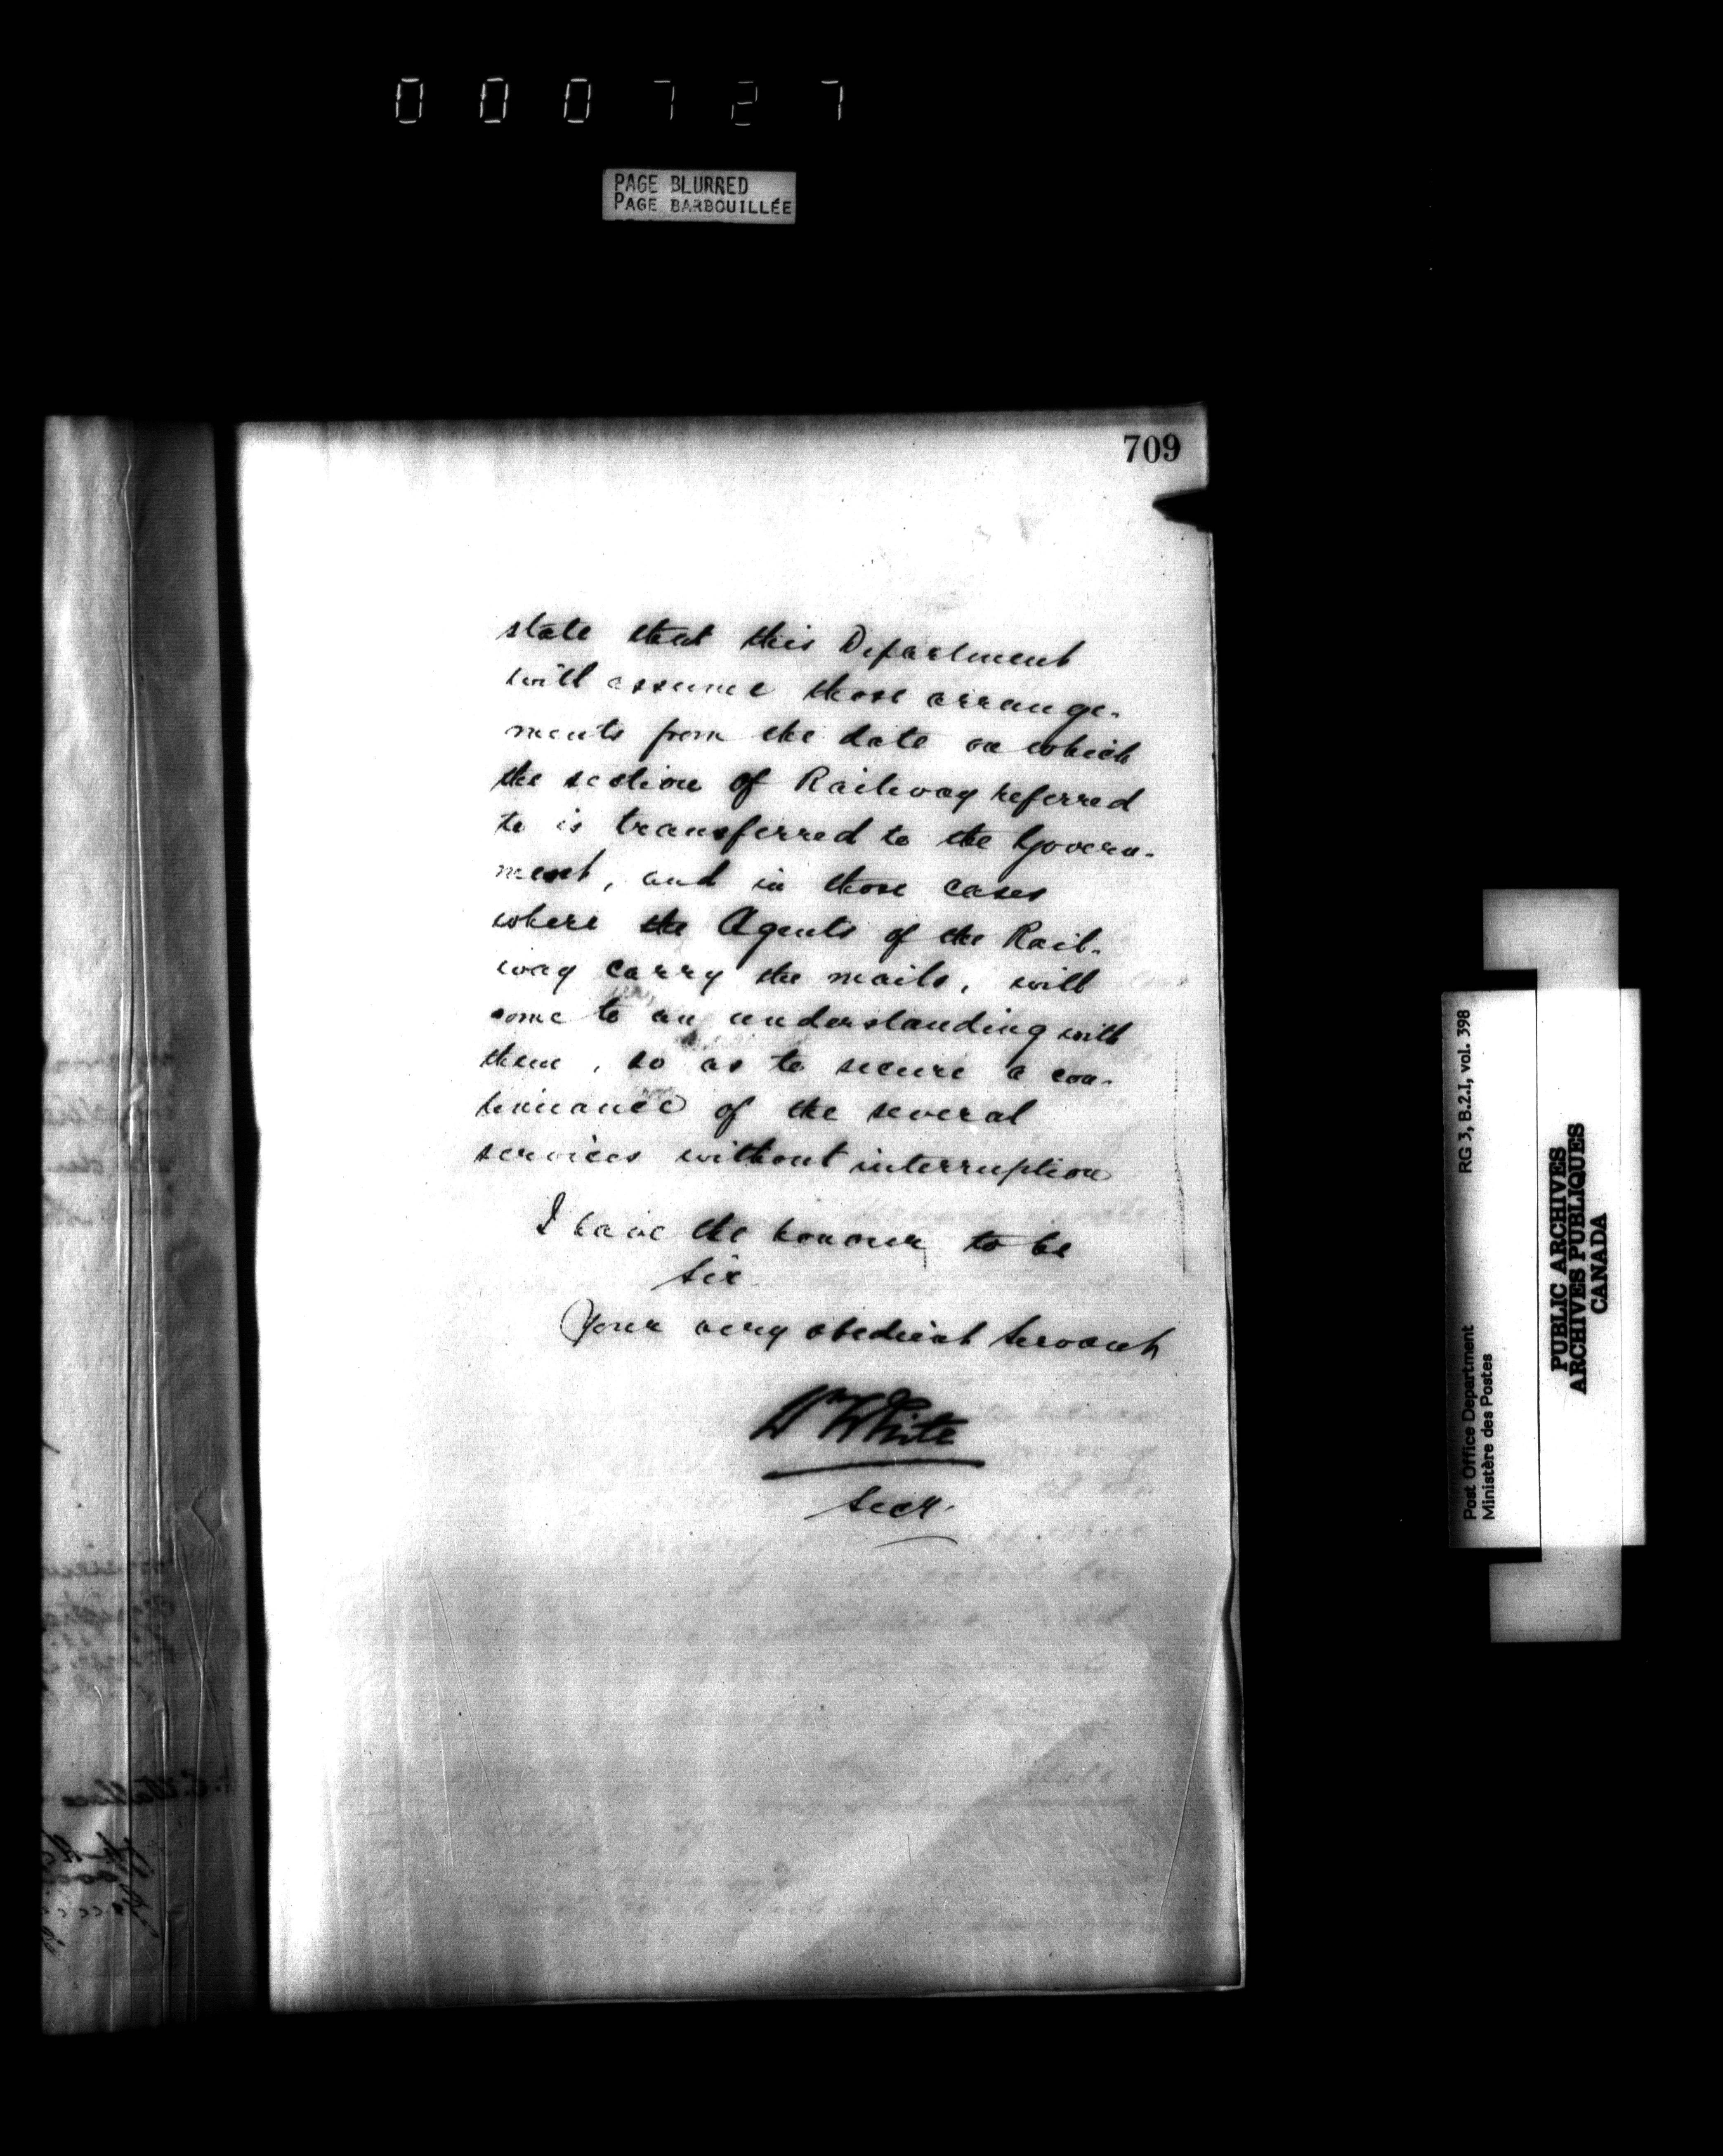 000727
PAGE BLURRED
PAGE BARBOUILLÉE
709
state that this Department
will assume those arrange-
ments from the date on which
the section of Railway referred
to is transferred to the Govern-
ment, and in those cases
where the Agents of the Rail-
way carry the mails, will
come to an understanding with
them, so as to secure a con-
tinuance of the several
services without interruption
I have the honour to be
Sir
Your very obedient Servant
W White
Secy.
RG 3, B.2.I, vol. 398
Post Office Department
Ministère des Postes
PUBLIC ARCHIVES
ARCHIVES PUBLIQUES
CANADA